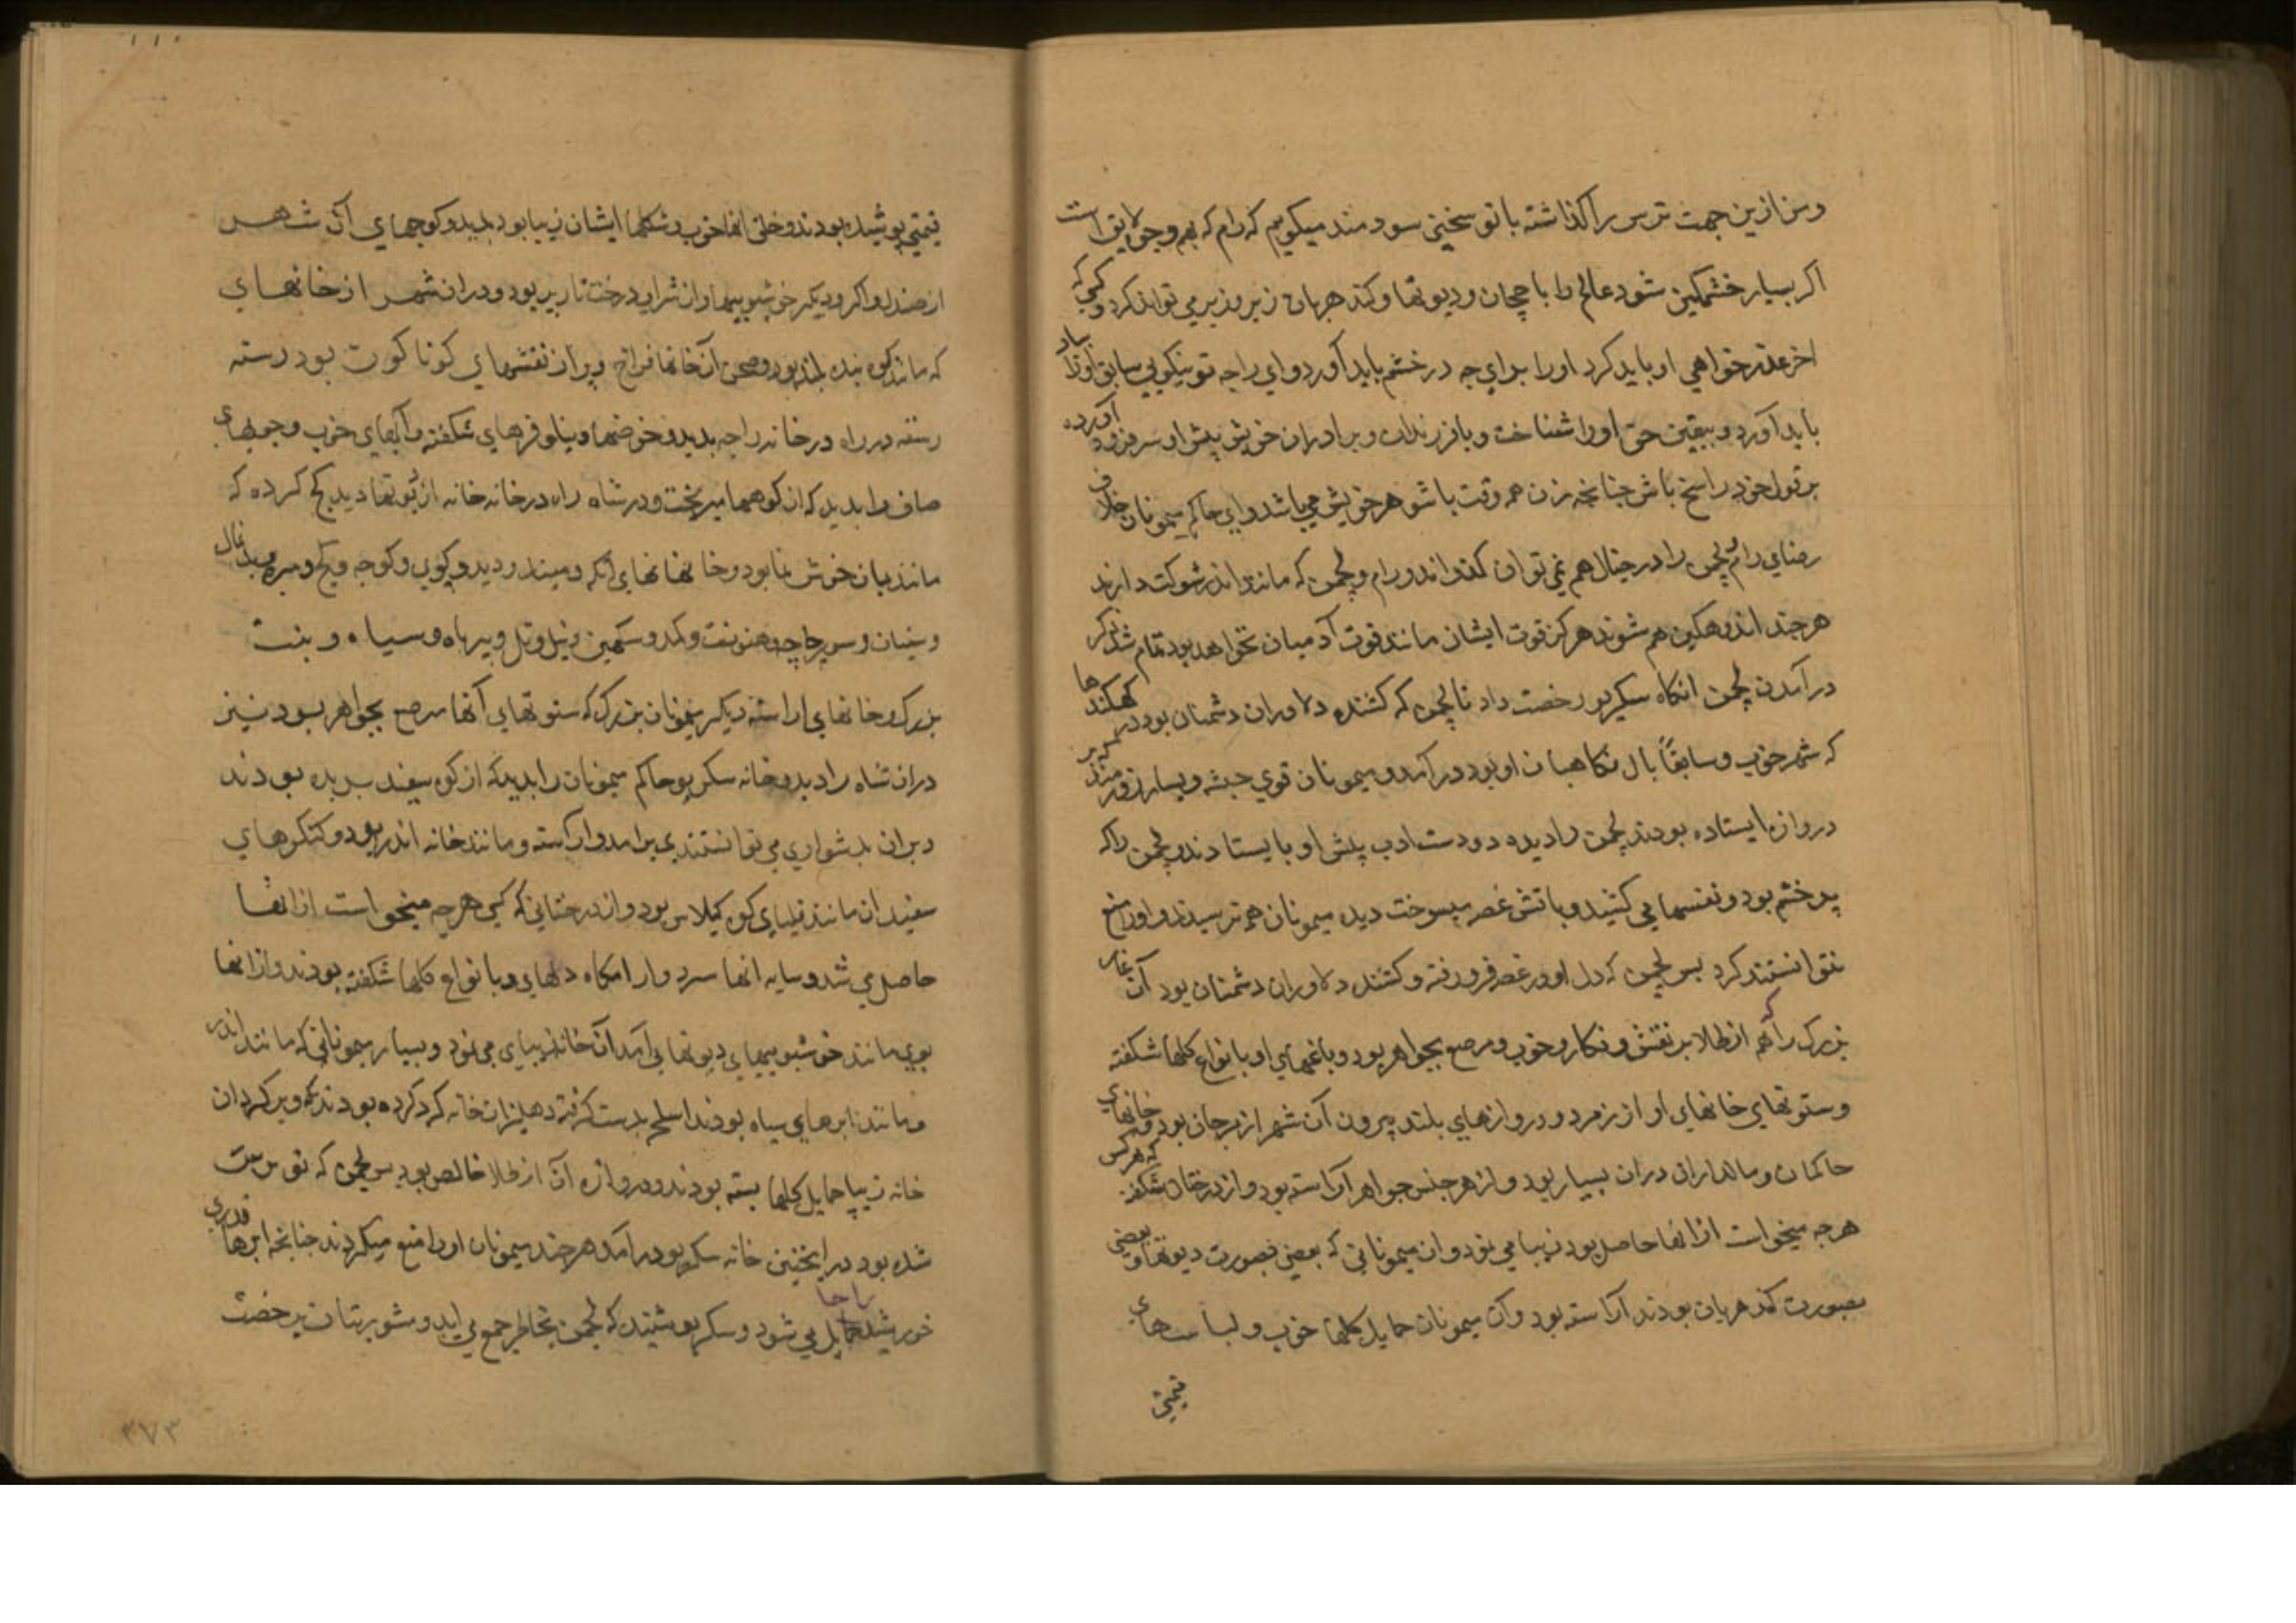 ومن ازین جهت ترس را گذاشته با تو سخنی سودمند میگویم که رام که بهر وجه لایق است
اکر بسیار خشمکین شود عالم را با ججان ودیوتها وکندهربان زیر وزبر می تواند کرد وکسی که
اخر عذرخواهی او باید کرد اورا برای چه در خشم باید آورد وای راجه تو نیکویی سابق اورا بیاد
باید آورد وبیقین حق اورا شناخت وبا فرزندان وبرادران خویش پیش او سر فرود آورده
بر قول خود راسخ باش چنانچه زن همه وقت با شوهر خویش می باشد وای حاکم میمونان خلاف
رضای رام و لچمن را در خیال هم نمی توان گذراند ورام ولچمن که مانند اندر شوکت دارند
هرچند اندوهکین هم شوند هرکز قوت ایشان مانند قوت آدمیان نخواهد بود تمام شد ذکر
در آمدن لچمن انکاه سکریو رخصت داد تا لچمن که کشنده دلاوران دشمنان بود در کهکندها
که شهر خوب وسابقاً بال نکاهبان او بود در آمد ومیمونان قوی جثه وبسیار زورمند که بر
دروازه ایستاده بودند لچمن را دیده دو دست ادب پیش او بایستادند ولچمن را که
پر خشم بود ونفسها می کشید وباتش غصه میسوخت دیده میمونان هم ترسیدند واورا منع
نتوانستند کرد پس لچمن که دل او در غصه فرو رفته وکشنده دلاوران دشمنان بود آن غار
بزرک را که هم از طلا پر نقش ونکار وخوب ومرصع بجواهر بود وباغهای او بانواع کلها شکفته
وستونهای خانهای او از زمرد ودروازهای بلند بیرون آن شهر از مرجان بود وخانهای
حاکمان ومالداران دران بسیار بود واز هر جنس جواهر آراسته بود واز درختان شکفته که هرکس
هرچه میخواست از انها حاصل بود زیبا می نمود وان میمونانی که بعضی بصورت دیوتها وبعضی
بصورت کندهربان بودند آراسته بود وآن میمونان حمایل کلها خوب ولباسهای
قیمتی
قیمتی پوشیده بودند وخلق انها خوب وشکلها ایشان زیبا بود بدید وکوچهای آن شهر
از صندل واکر ودیکر خوشبوییها واز شراب درخت تار پر بود ودران شهر از خانهای
که مانند کوه بنده بلند بود وصحن آن خانها فراخ وبران نقشهای کوناکون بود رسته
رسته در راه در خانه راجه بدید وحوضها ونیلوفرهای شکفته وآبهای خوب وجویهای
صاف را بدید که از کوهها میریخت ودر شاه راه در خانه خانه از دیوتها دید کچ کرده که
مانند بان خوش نما بود وخانها
بزرک وخانهای اراسته دیکر میمونان بزرک که ستونهای آنها مرصع بجواهر بود نیز
دران شاه راه دید وخانه سکریو حاکم میمونان را بدید که از کوه سفید بریده بودند
وبران بدشواری می توانستندی برامد واراسته ومانند خانه اندر بود وکنکرهای
سفید ان مانند قلهای کوه کیلاس بود واز درختانی که کسی هرچه میخواست از انها
حاصل می شد وسایه انها سرد وارامکاه دلهای وبانواع کلها شکفته بودند واز انها
بوی مانند خوشبوییهای دیوتها می آمد آن خانه زیبای می نمود وبسیار میمونانی که مانند اندر
ومانند ابرهای سیاه بودند اسلحه بدست کرفته دهلیزان خانه که کرده بودند وبر کردان
خانه زیبا حمایل کلها بسته بودند ودروازه آن از طلا خالص بود پس لچمن که
شده بود در اینچنین خانه سکریو درامد هرچند میمونان اورا منع میکردند چنانچه ابرها قدری
خورشید را حایل می شود وسکریو شنید که لچمن
۳۷۳